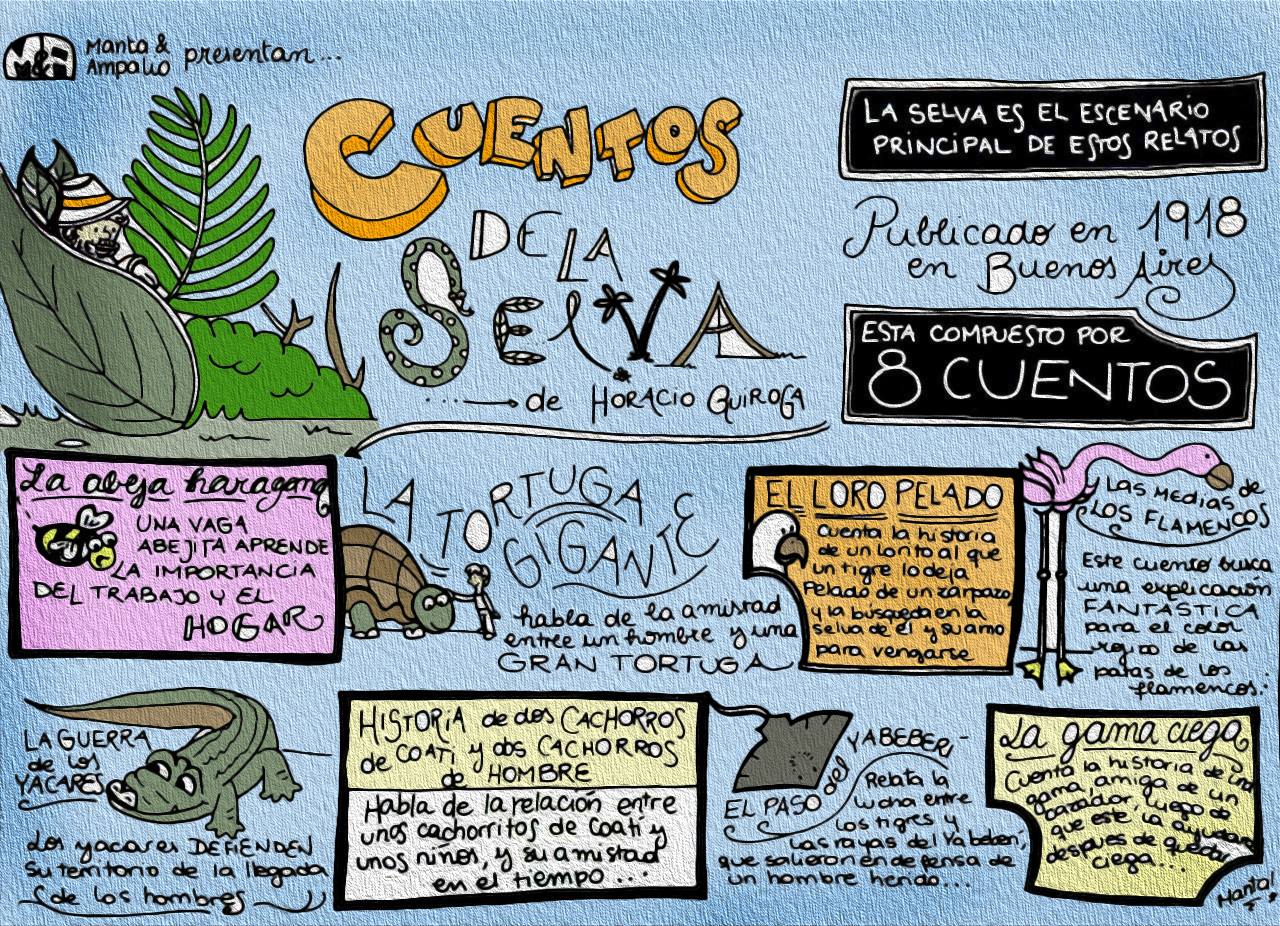 M&A
Manta &
Ampalio
presentan...
CUENTOS
DE LA
SELVA
de HORACIO QUIROGA
LA SELVA ES EL ESCENARIO
PRINCIPAL DE ESTOS RELATOS
Publicado en 1918
en Buenos Aires
ESTA COMPUESTO POR
8 CUENTOS
La abeja haragana
UNA VAGA
ABEJITA APRENDE
LA IMPORTANCIA
DEL TRABAJO Y EL
HOGAR
LA TORTUGA
GIGANTE
habla de la amistad
entre un hombre y una
GRAN TORTUGA
EL LORO PELADO
Cuenta la historia
de un lorito al que
un tigre lo deja
Pelado de un zarpazo
y la búsqueda en la
selva de él y su amo
para vengarse
LAS MEDIAS de
LOS FLAMENCOS
Este cuento busca
una explicación
FANTÁSTICA
para el color
rojizo de las
patas de los
flamencos.
LA GUERRA
de los
YACARES
Los yacares DEFIENDEN
su territorio de la llegada
de los hombres
HISTORIA de dos CACHORROS
de COATÍ y dos CACHORROS
de HOMBRE
Habla de la relación entre
unos cachorritos de Coatí y
unos niños, y su amistad
en el tiempo...
EL PASO del YABEBERI
Relata la
lucha entre
los tigres y
las rayas del Yabeberi,
que salieron en defensa de
un hombre herido...
La gama ciega
Cuenta la historia de una
gama, amiga de un
cazador, luego de
que este la ayudara
después de quedar
ciega...
Manta!